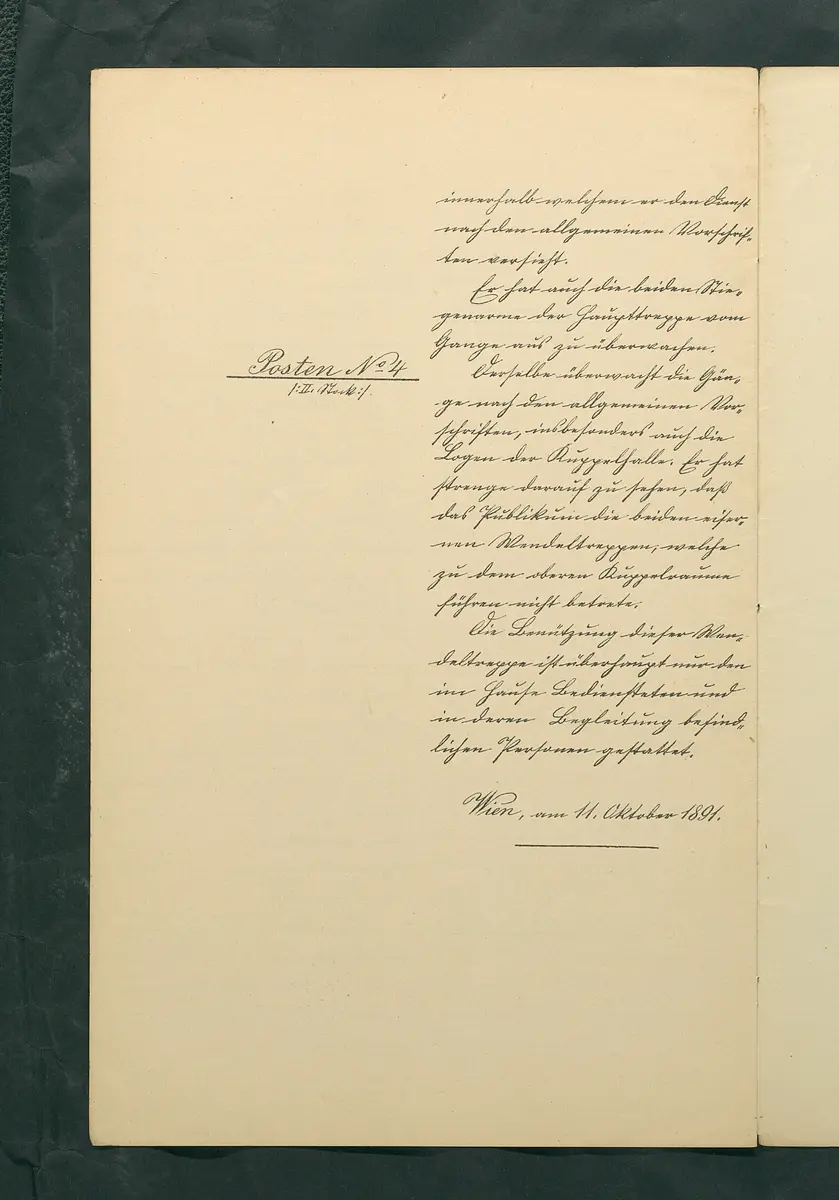 innerhalb welchem er den Dienst
nach den allgemeinen Vorschrif-
ten versieht.
Er hat auch die beiden Stie-
genarme der Haupttreppe vom
Gange aus zu überwachen.
Posten No 4
/:II. Stock:/.
Derselbe überwacht die Gän-
ge nach den allgemeinen Vor-
schriften, insbesonders auch die
Logen der Kuppelhalle. Er hat
strenge darauf zu sehen, daß
das Publikum die beiden eiser-
nen Wendeltreppen, welche
zu dem oberen Kuppelraume
führen nicht betrete.
Die Benützung dieser Wen-
deltreppe ist überhaupt nur den
im Hause Bediensteten und
in deren Begleitung befind-
lichen Personen gestattet.
Wien, am 11. Oktober 1891.